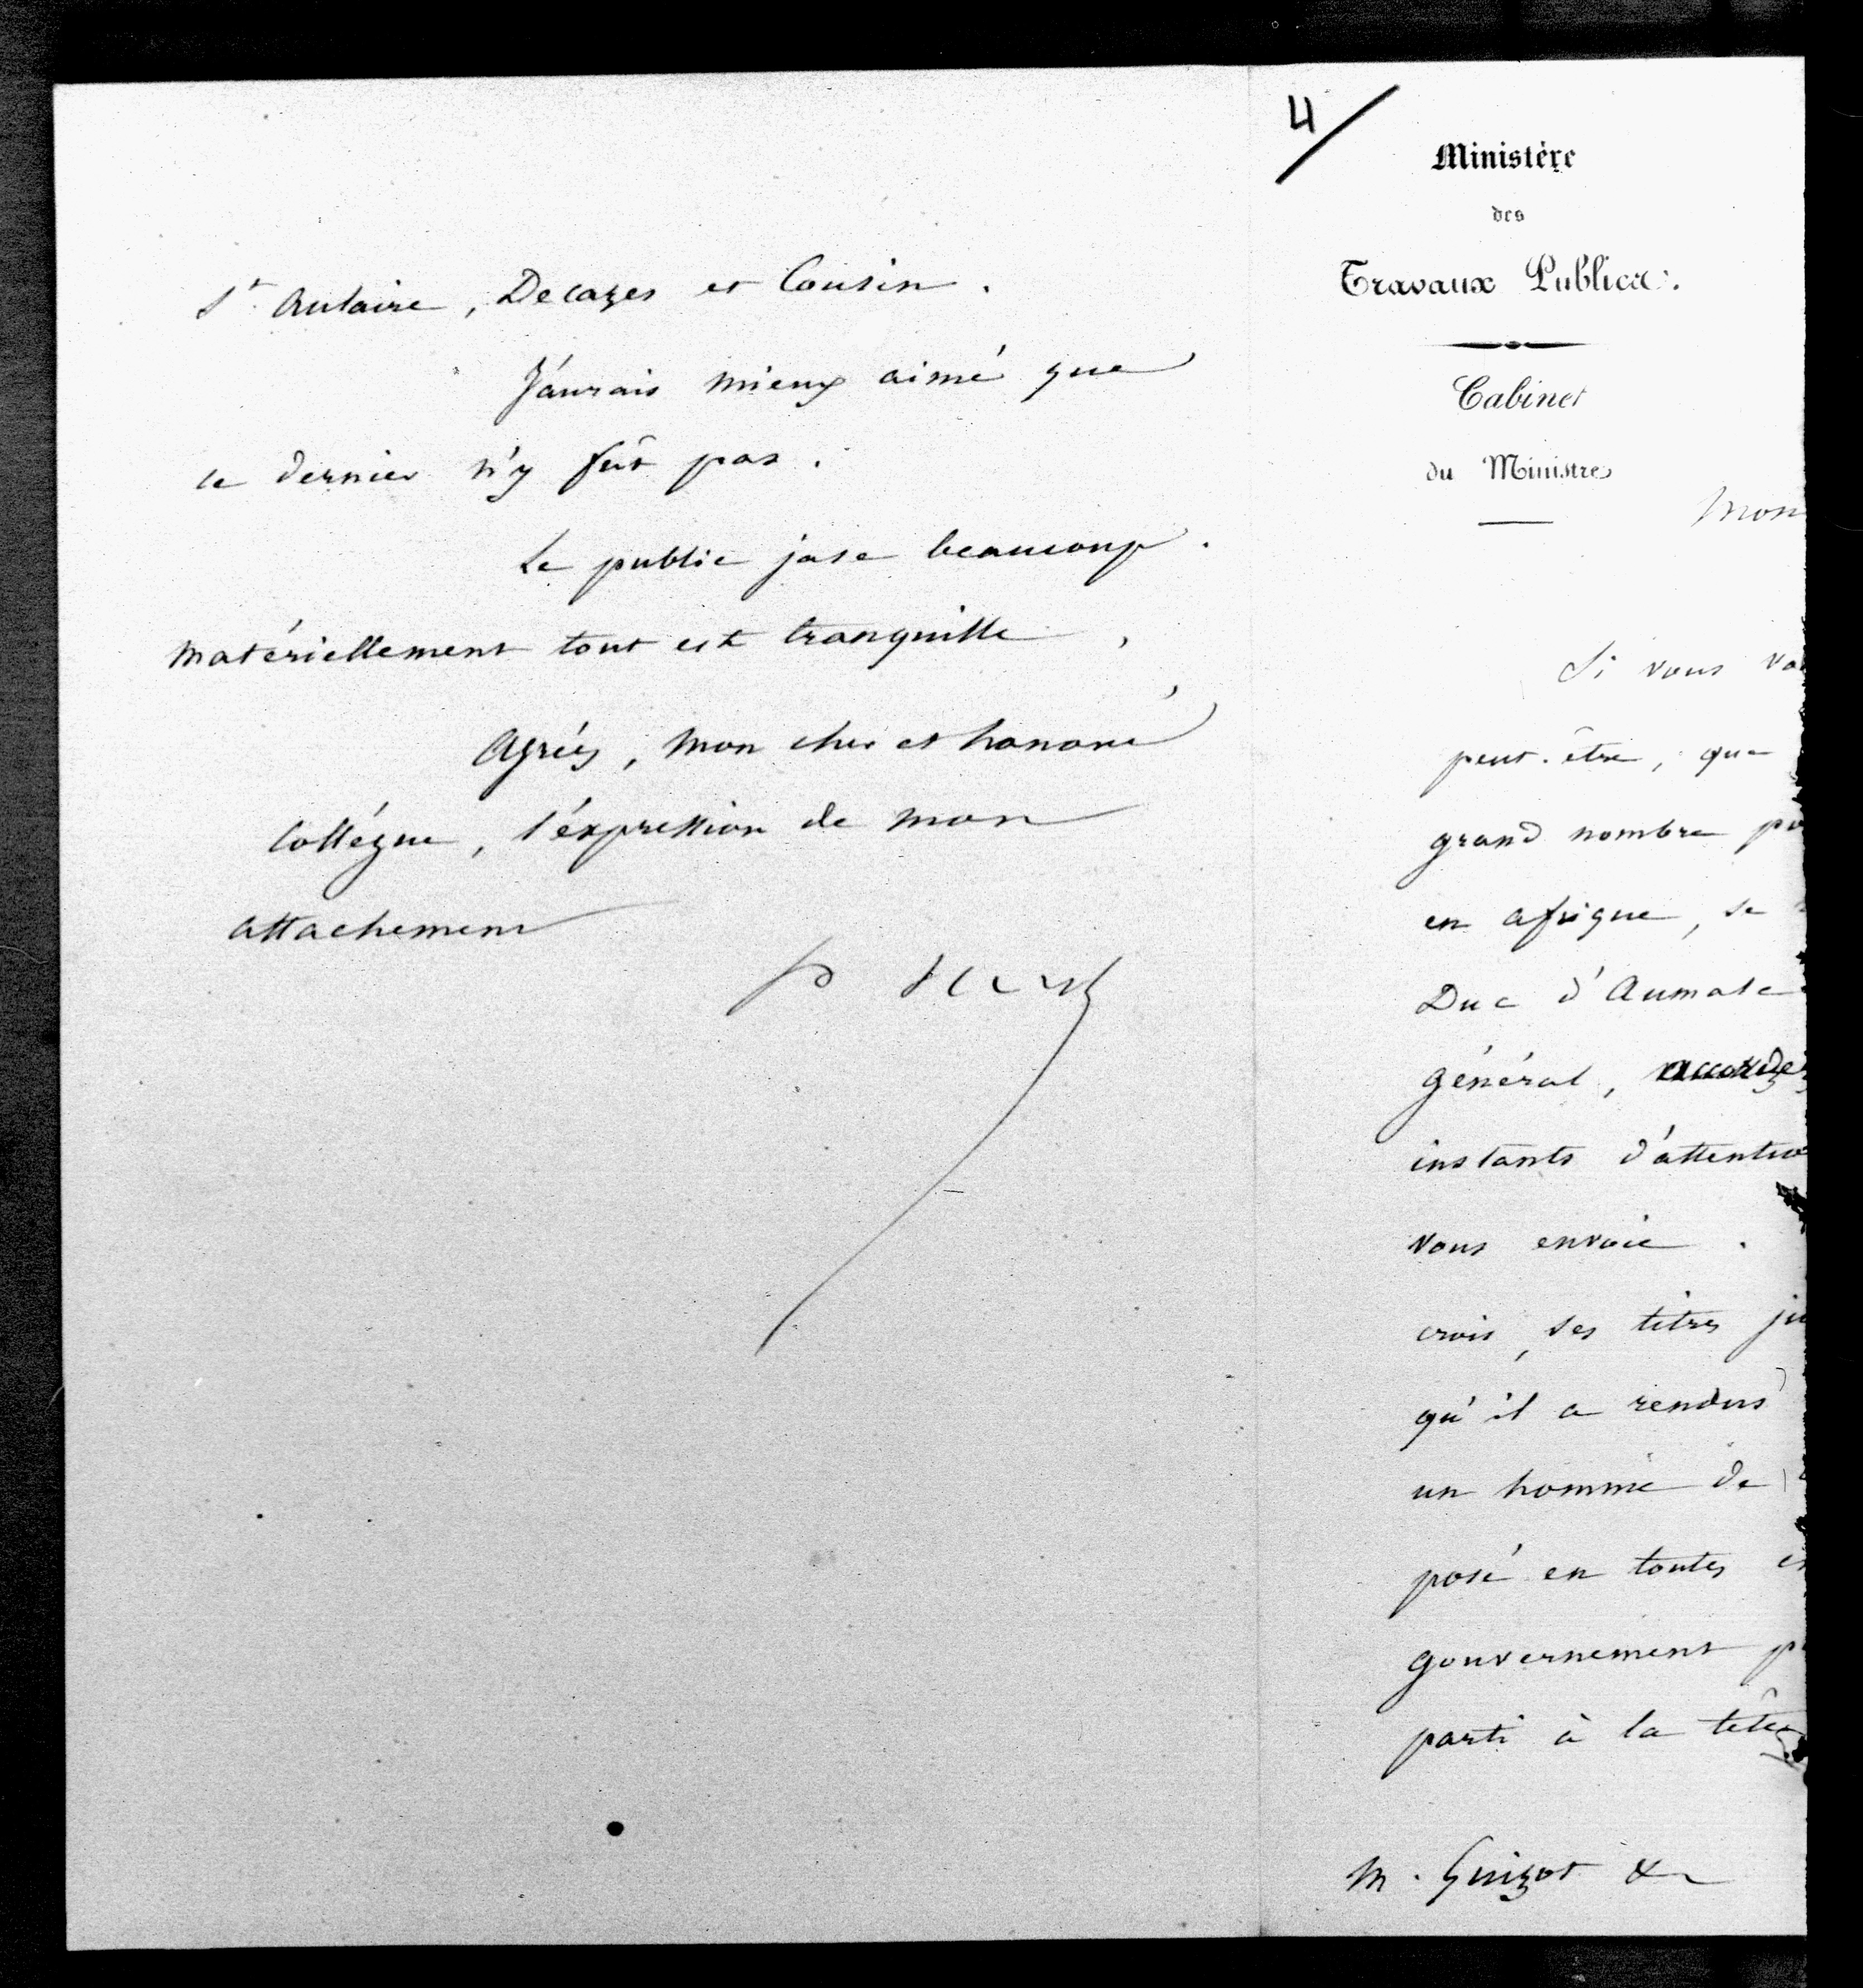 St Aulaire, Decazes et Cousin.
J'aurais mieux aimé que
ce dernier n'y fût pas.
Le public jase beaucoup.
matériellement tout est tranquille,
Agréez, mon cher et honoré
Collégue, l'éxpression de mon
attachement
4/
Ministère
des
Travaux Publics.
Cabinet
du Ministre
Mon
Si vous
peut-être, que
grand nombre
en afrique, se
Duc d'Aumale
général,
instants d'attention
vous envoie.
crois, ses titres
qu'il a rendus
un homme de
posé en toutes
gouvernement
parti à la tête
M. Guizot &